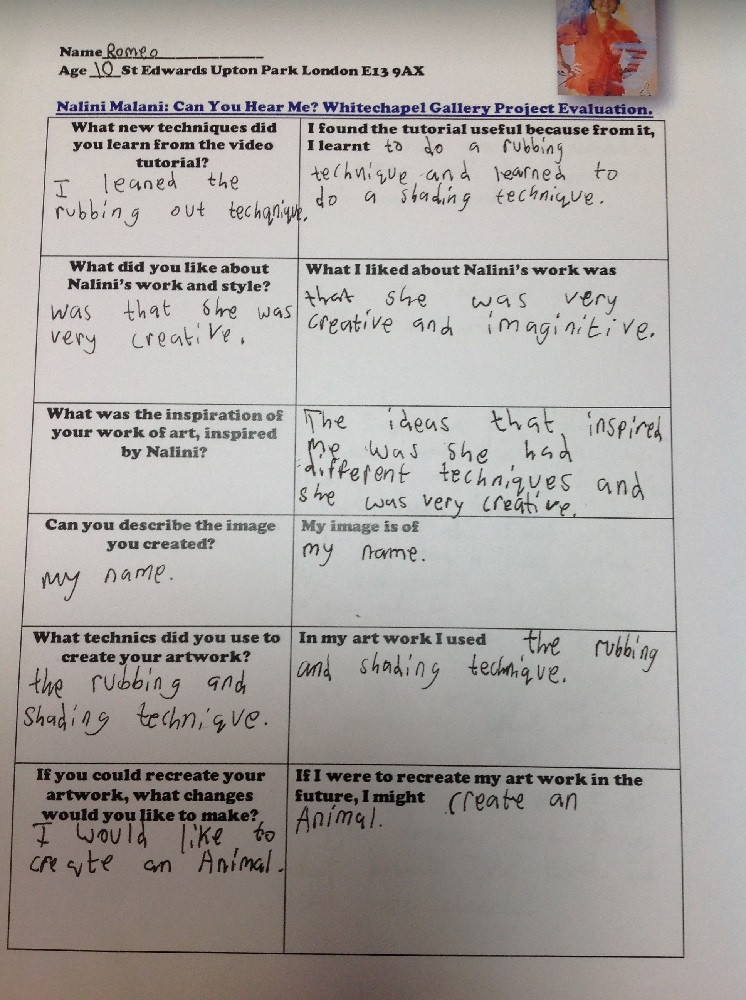 Name Romeo
Age 10 St Edwards Upton Park London E13 9AX
Nalini Malani: Can You Hear Me? Whitechapel Gallery Project Evaluation.
What new techniques did
you learn from the video
tutorial?
I leaned the
rubbing out techqnique.
I found the tutorial useful because from it,
I learnt to do a rubbing
technique and learned to
do a shading technique.
What did you like about
Nalini's work and style?
was that she was
very creative.
What I liked about Nalini's work was
that she was very
creative and imaginitive.
What was the inspiration of
your work of art, inspired
by Nalini?
The ideas that inspired
me was she had
different techniques and
she was very creative.
Can you describe the image
you created?
my name.
My image is of
my name.
What technics did you use to
create your artwork?
the rubbing and
shading technique.
In my art work I used the rubbing
and shading technique.
If you could recreate your
artwork, what changes
would you like to make?
I would like to
create an Animal.
If I were to recreate my art work in the
future, I might create an
Animal.